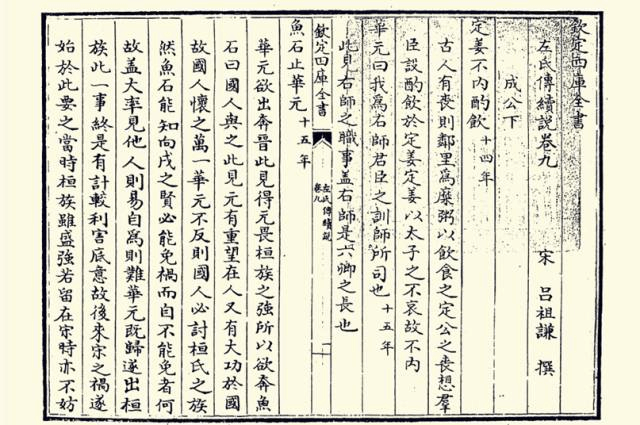 欽定四庫全書
左氏傳續說卷九
宋 呂祖謙 撰
成公下
定姜不內酌飲 十四年
古人有喪則鄰里為糜粥以飲食之定公之喪想羣
臣設酌飲於定姜定姜以太子之不哀故不內
華元曰我為右師君臣之訓師所司也 十五年
此見右師之職事蓋右師是六卿之長也
欽定四庫全書
左氏傳續說
卷九
一
魚石止華元 十五年
華元欲出奔晉此見得元畏桓族之強所以欲奔魚
石曰國人與之此見元有重望在人又有大功於國
故國人懷之萬一華元不反則國人必討桓氏之族
然魚石能知向戌之賢必能免禍而自不能免者何
故蓋大率見他人則易自為則難華元既歸遂出桓
族此一事終是有計較利害底意故後來宋之禍遂
始於此要之當時桓族雖盛強若留在宋時亦不妨